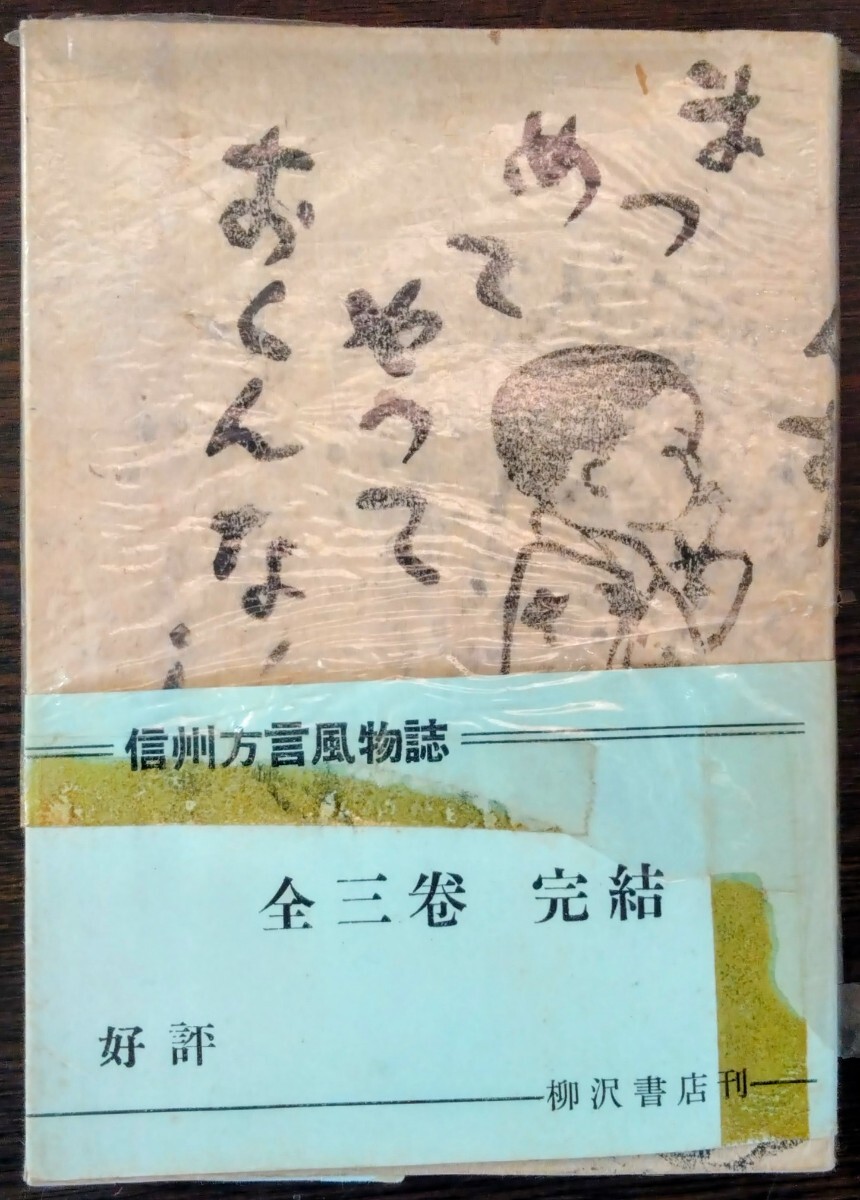 まつ
めて
やつて
おくんな
信州方言風物誌
全三巻 完結
好評
柳沢書店刊